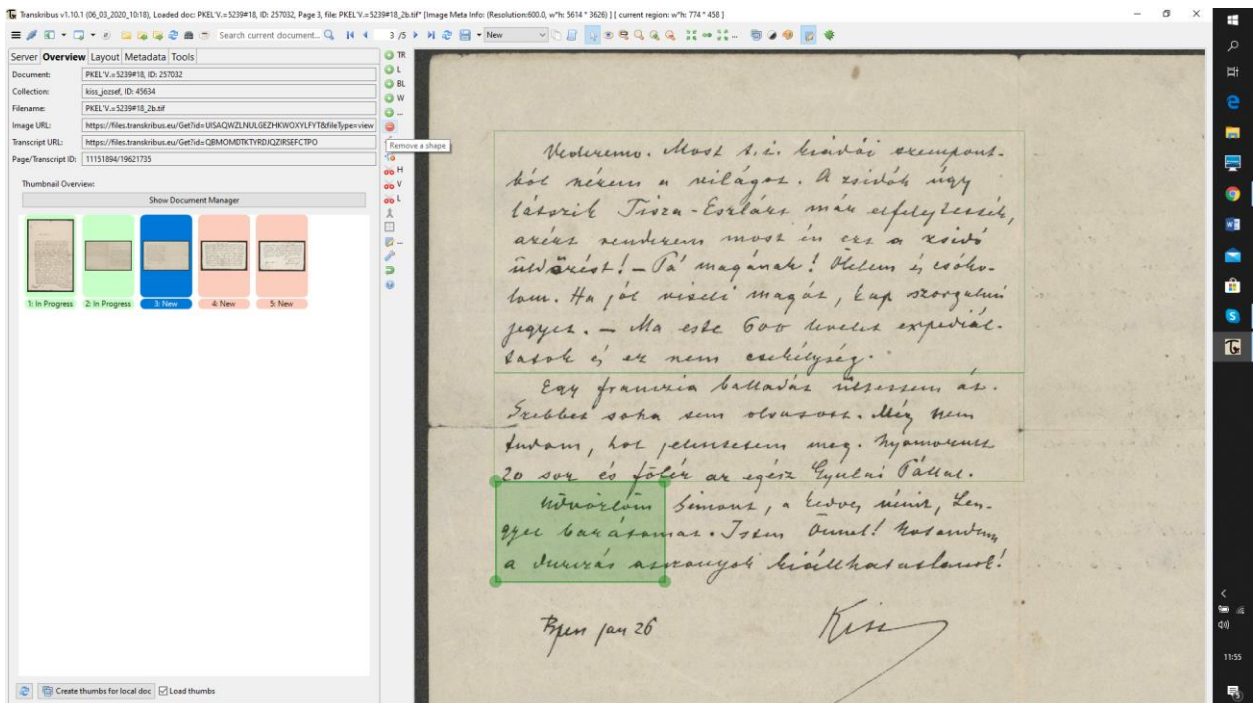 Transkribus v1.10.1 (06_03_2020_10:18), Loaded doc: PKEL'V.=5239#18, ID: 257032, Page 3, file: PKEL'V.=5239#18_2b.tif* [Image Meta Info: (Resolution:600.0, w*h: 5614 * 3626) ] [ current region: w*h: 774 * 458 ]
Search current document...
3 /5
New
Server Overview Layout Metadata Tools
Document: PKEL'V.=5239#18, ID: 257032
Collection: kiss_jozsef, ID: 45634
Filename: PKEL'V.=5239#18_2b.tif
Image URL:
Transcript URL:
Page/Transcript ID: 11151894/19621735
Thumbnail Overview:
Show Document Manager
1: In Progress
2: In Progress
3: New
4: New
5: New
Create thumbs for local doc
Load thumbs
TR
L
BL
W
...
Remove a shape
H
V
L
...
Vederemo. Most t. i. kiadói szempont-
ból nézem a világot. A zsidók úgy
látszik Tisza-Eszlárt már elfelejtették,
azért rendezem most én ezt a zsidó
üldözést! – Pá magának! Ölelem és csóko-
lom. Ha jól viseli magát, kap szorgalmi
jegyet. – Ma este 600 levelet expediál-
tatok és ez nem csekélység.
Egy franczia balladát ültettem át.
Szebbet soha sem olvasott. Még nem
tudom, hol jelentetem meg. Nyomorult
20 sor és fölér az egész Gyulai Pállal.
Üdvözlöm Simont, a kedves nénit, Len-
gyel barátomat. Isten Önnel!
a asszonyok kiállhatatlanok!
Bpen jan 26
Kiss
11:55